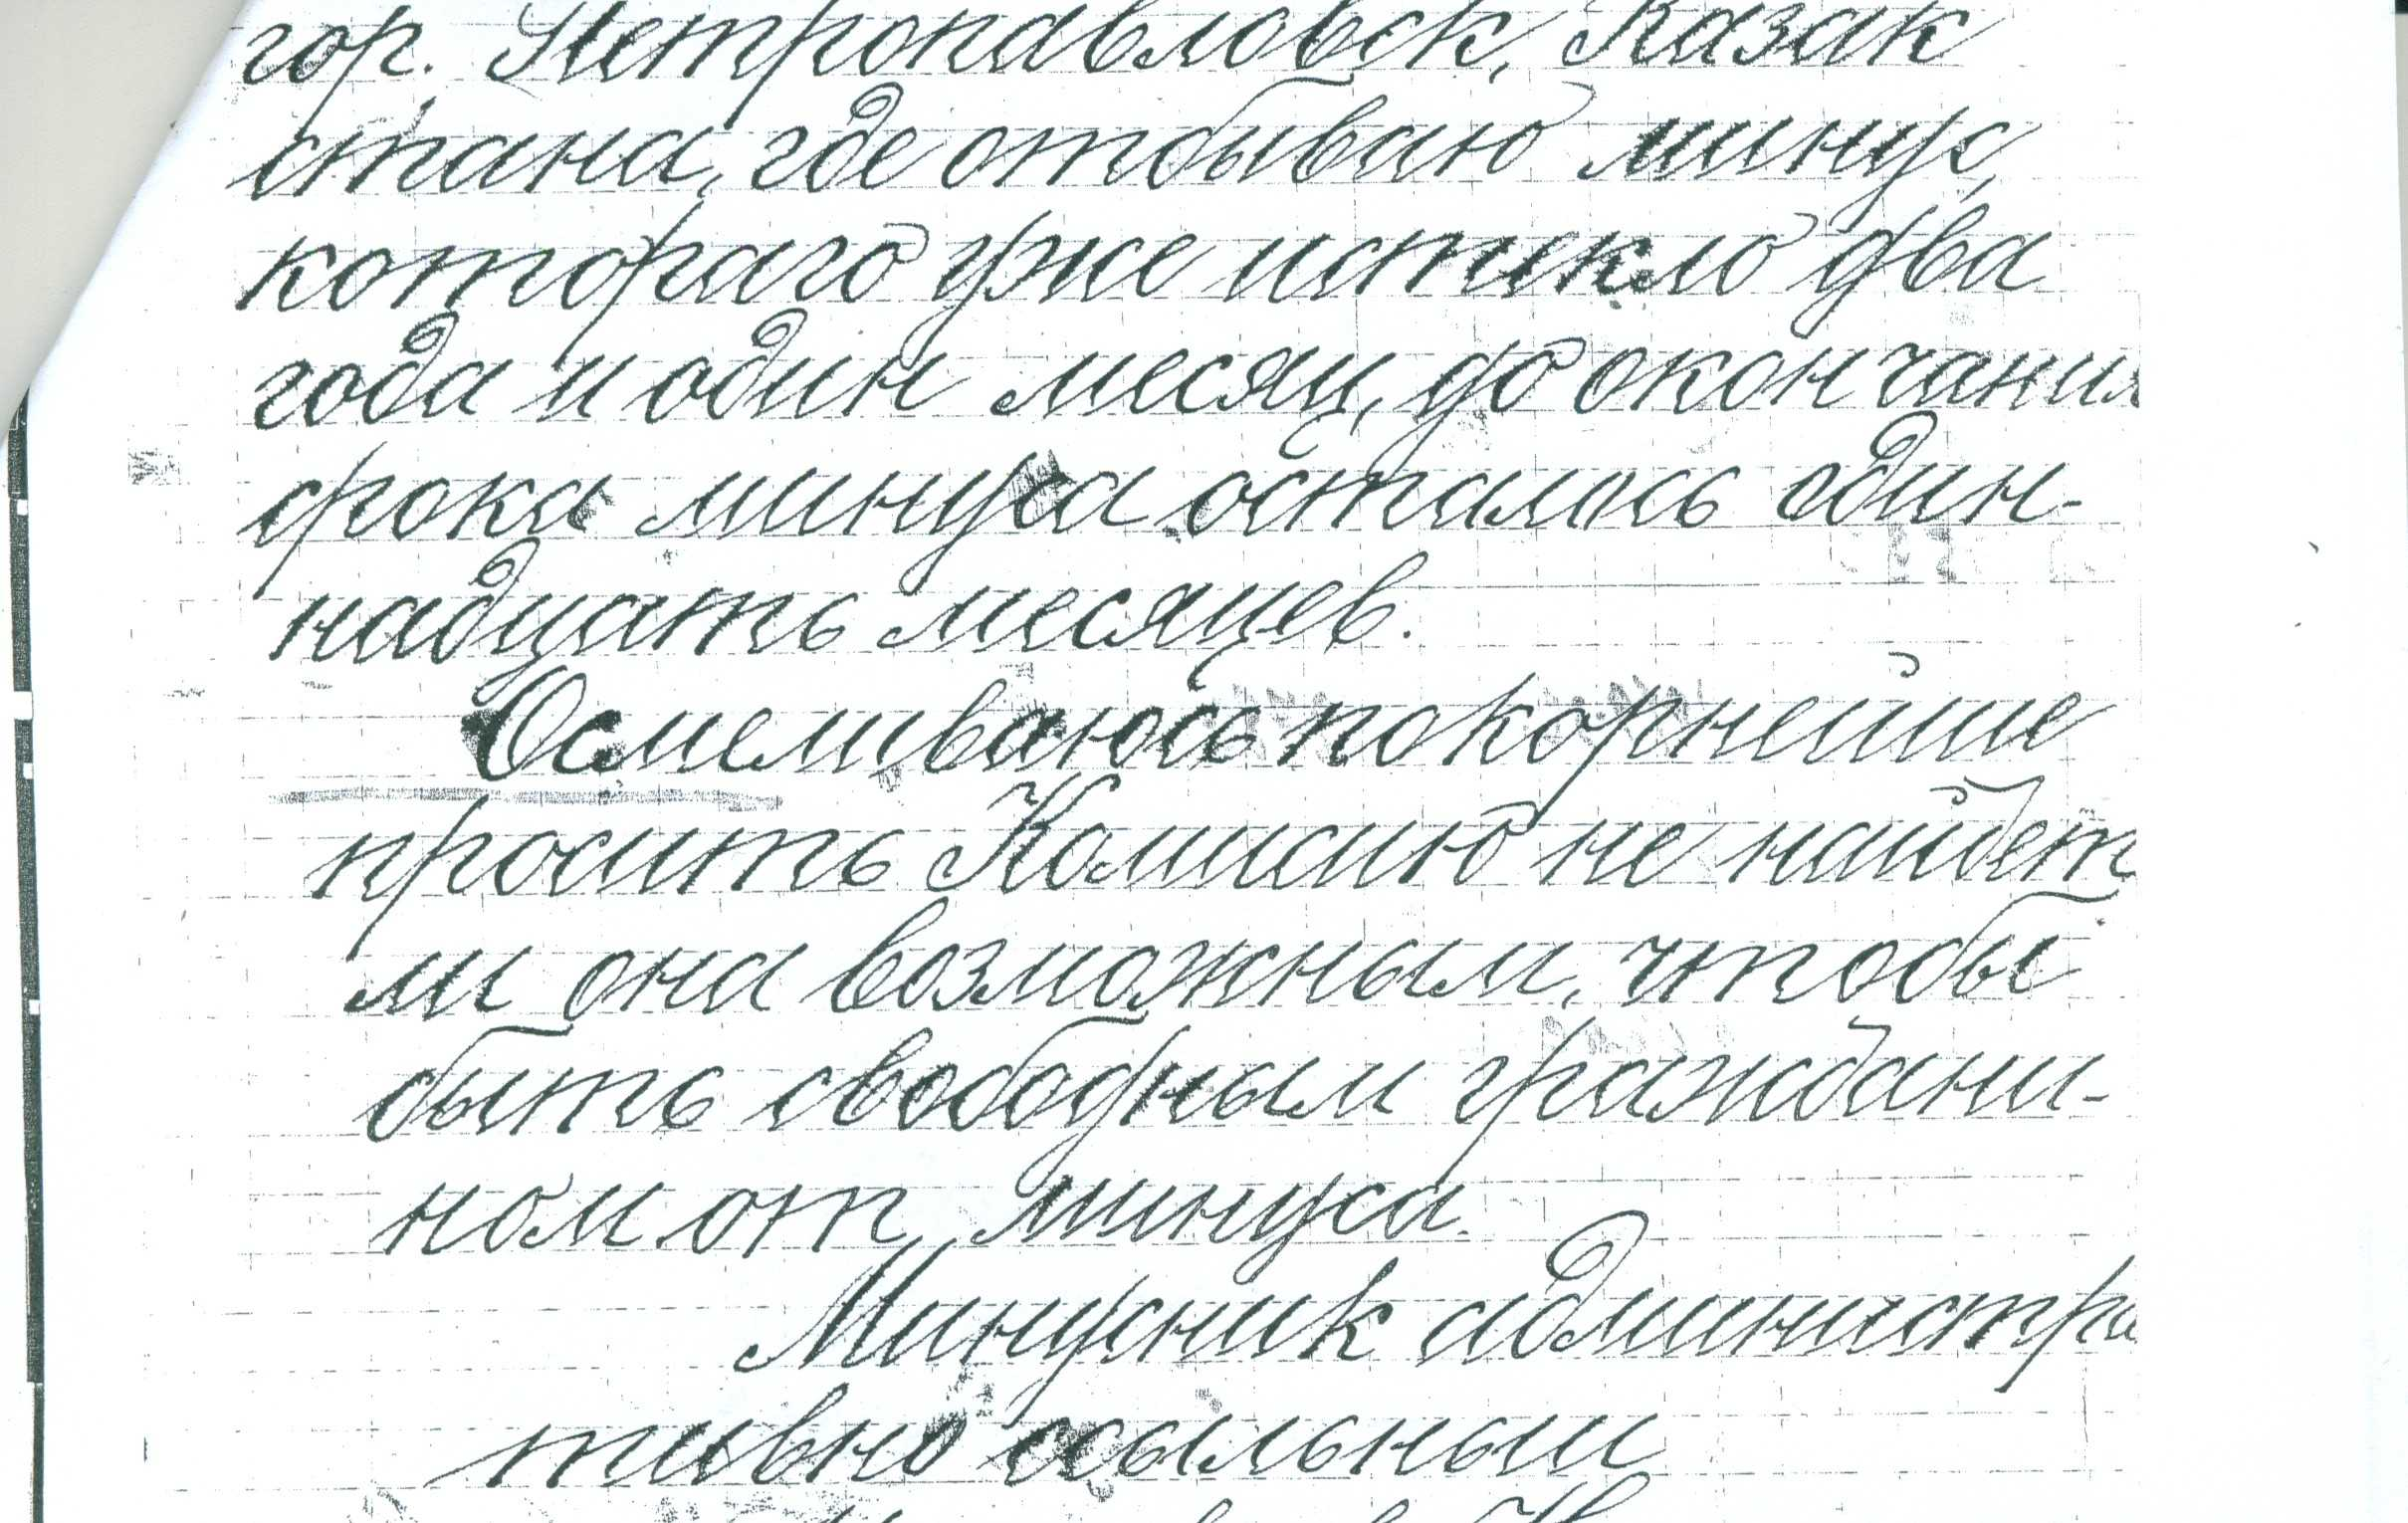 гор. Петропавловск, Казак
стана, где отбываю минус,
котораго уже истекло два
года и один месяц, до окончания
срока минуса осталось один-
надцать месяцев.
Осмеливаюсь покорнейше
просить Комисию не найдет
ли она возможным, чтобы
быть свободным граждани-
ном от минуса.
Минусник администра
тивно ссыльный